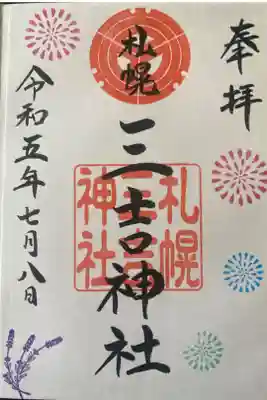 奉拝
札幌
三吉神社
令和五年七月八日
札幌
三吉
神社